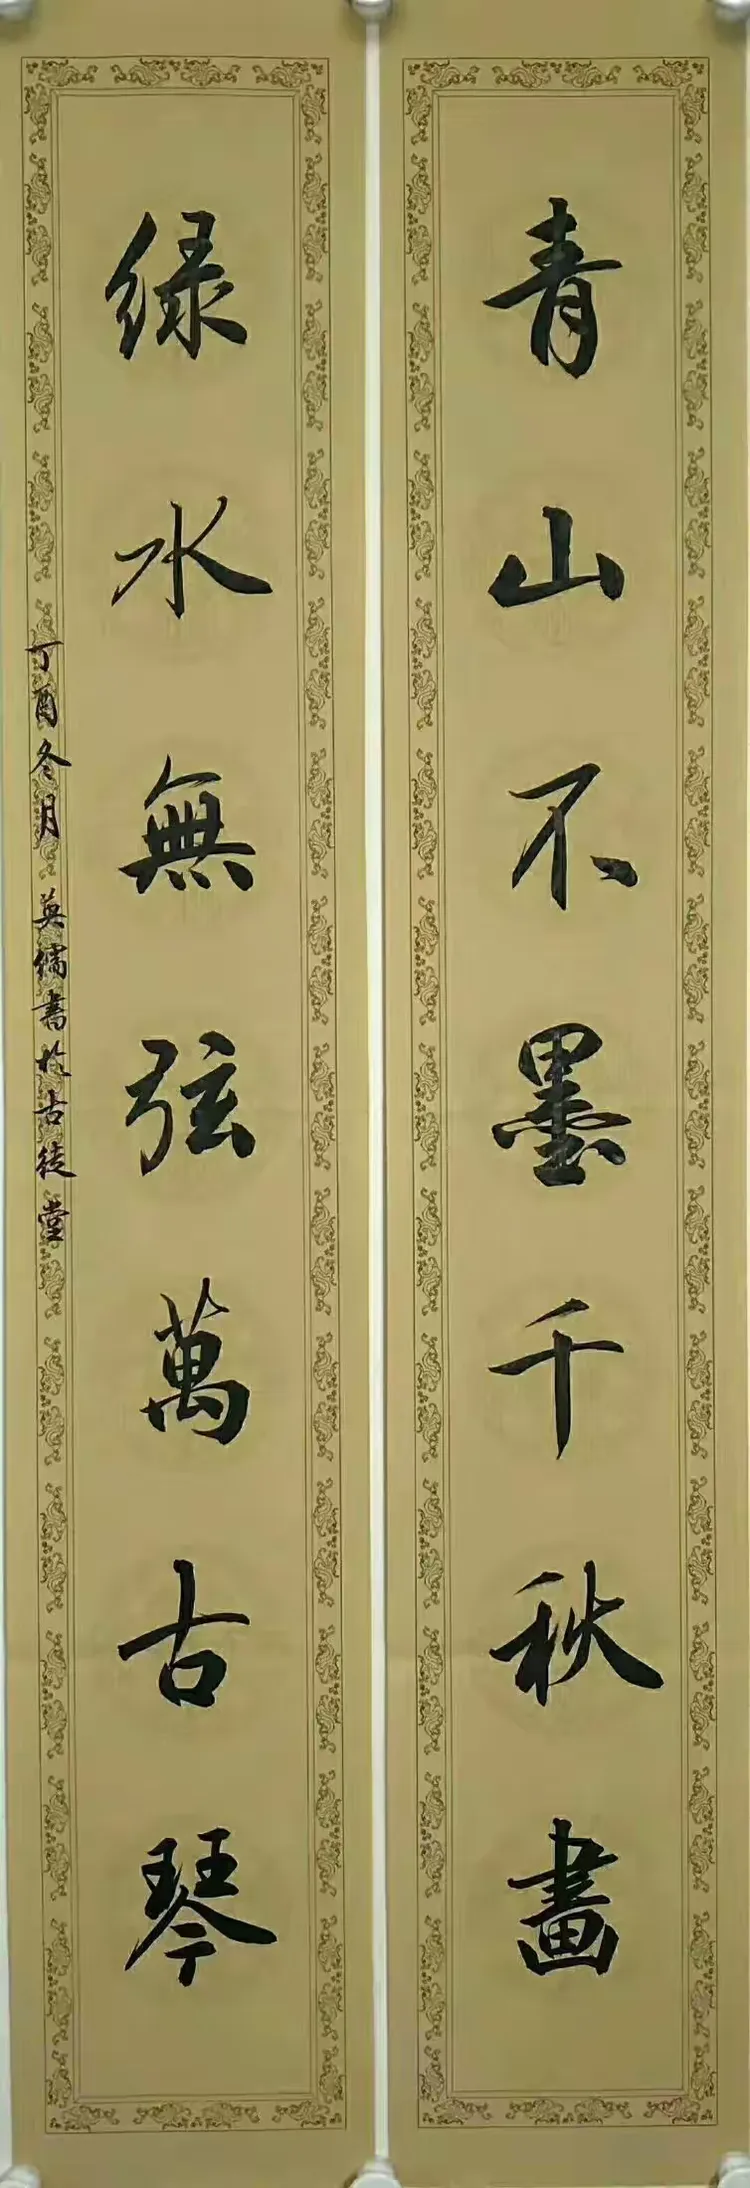 青山不墨千秋畫
绿水無弦萬古琴
丁酉冬月 英儒書於古徒堂